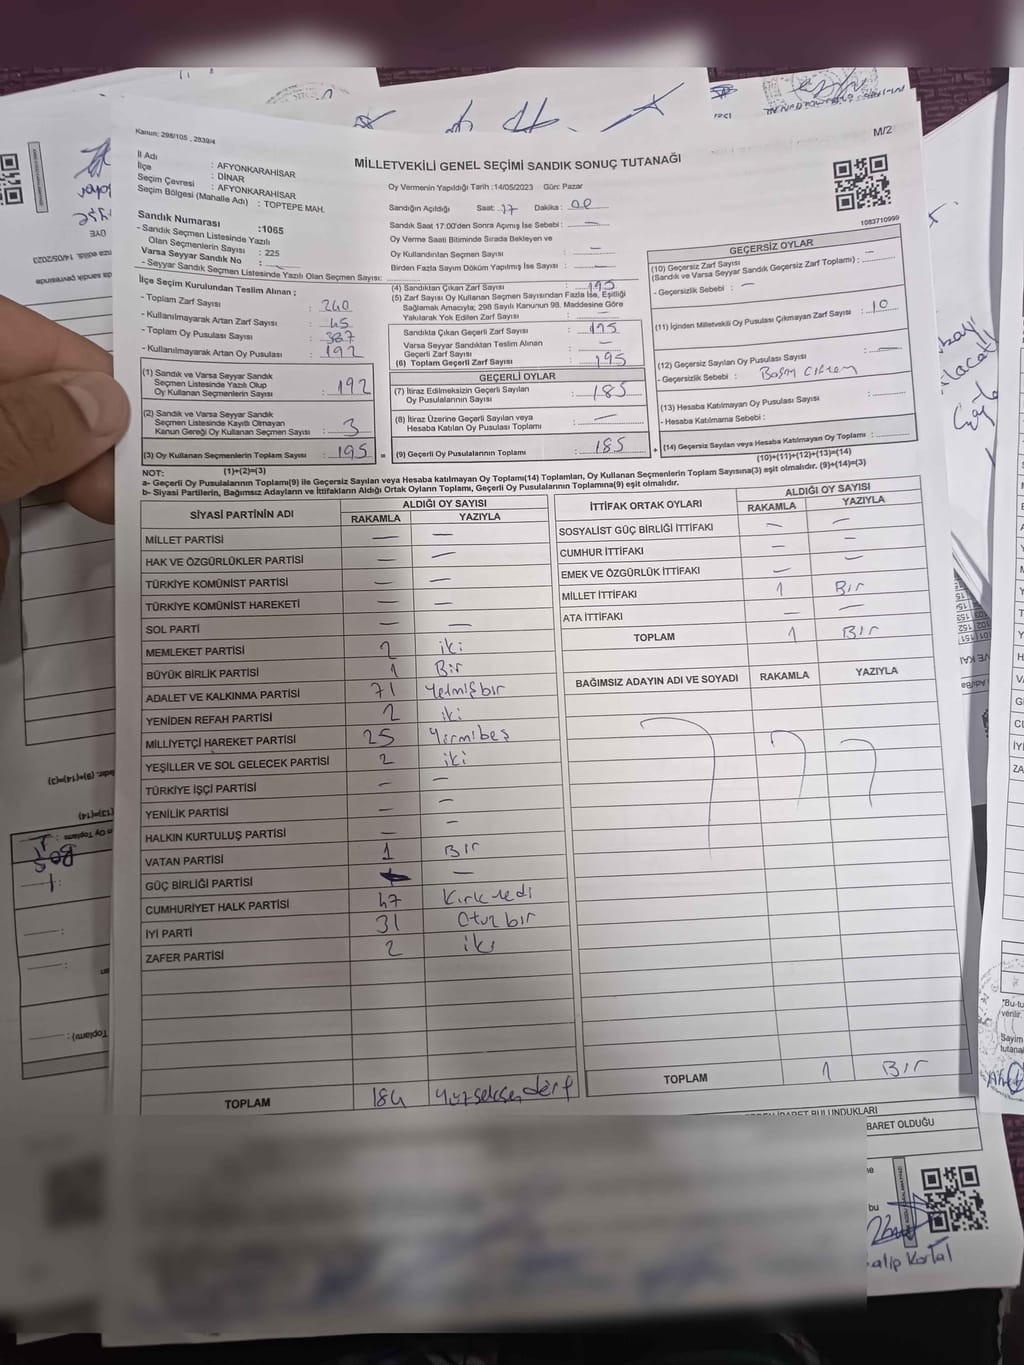 Kanun: 298/105 , 2839/4
M/2
MİLLETVEKİLİ GENEL SEÇİMİ SANDIK SONUÇ TUTANAĞI
İl Adı : AFYONKARAHİSAR
İlçe : DİNAR
Seçim Çevresi : AFYONKARAHİSAR
Seçim Bölgesi (Mahalle Adı) : TOPTEPE MAH.
Oy Vermenin Yapıldığı Tarih :14/05/2023 Gün: Pazar
Sandığın Açıldığı Saat: 17 Dakika: 00
1083710999
Sandık Numarası :1065
- Sandık Seçmen Listesinde Yazılı
Olan Seçmenlerin Sayısı : 225
Varsa Seyyar Sandık No :
- Seyyar Sandık Seçmen Listesinde Yazılı Olan Seçmen Sayısı:
Sandık Saat 17:00'den Sonra Açımış İse Sebebi : —
Oy Verme Saati Bitiminde Sırada Bekleyen ve
Oy Kullandırılan Seçmen Sayısı : —
Birden Fazla Sayım Döküm Yapılmış İse Sayısı : —
İlçe Seçim Kurulundan Teslim Alınan ;
- Toplam Zarf Sayısı : 240
- Kullanılmayarak Artan Zarf Sayısı : 45
- Toplam Oy Pusulası Sayısı : 387
- Kullanılmayarak Artan Oy Pusulası : 192
(1) Sandık ve Varsa Seyyar Sandık
Seçmen Listesinde Yazılı Olup
Oy Kullanan Seçmenlerin Sayısı : 192
(2) Sandık ve Varsa Seyyar Sandık
Seçmen Listesinde Kayıtlı Olmayan
Kanun Gereği Oy Kullanan Seçmen Sayısı : 3
(3) Oy Kullanan Seçmenlerin Toplam Sayısı : 195
(4) Sandıktan Çıkan Zarf Sayısı : 195
(5) Zarf Sayısı Oy Kullanan Seçmen Sayısından Fazla İse, Eşitliği
Sağlamak Amacıyla; 298 Sayılı Kanunun 98. Maddesine Göre
Yakılarak Yok Edilen Zarf Sayısı : —
Sandıkta Çıkan Geçerli Zarf Sayısı : 195
Varsa Seyyar Sandıktan Teslim Alınan
Geçerli Zarf Sayısı : —
(6) Toplam Geçerli Zarf Sayısı : 195
GEÇERLİ OYLAR
(7) İtiraz Edilmeksizin Geçerli Sayılan
Oy Pusulalarının Sayısı : 185
(8) İtiraz Üzerine Geçerli Sayılan veya
Hesaba Katılan Oy Pusulası Toplamı : —
= (9) Geçerli Oy Pusulalarının Toplamı : 185 +
GEÇERSİZ OYLAR
(10) Geçersiz Zarf Sayısı
(Sandık ve Varsa Seyyar Sandık Geçersiz Zarf Toplamı) : —
- Geçersizlik Sebebi : —
(11) İçinden Milletvekili Oy Pusulası Çıkmayan Zarf Sayısı : 10
(12) Geçersiz Sayılan Oy Pusulası Sayısı : —
- Geçersizlik Sebebi :
(13) Hesaba Katılmayan Oy Pusulası Sayısı :
- Hesaba Katılmama Sebebi :
(14) Geçersiz Sayılan veya Hesaba Katılmayan Oy Toplamı :
NOT: (1)+(2)=(3)
(10)+(11)+(12)+(13)=(14)
a- Geçerli Oy Pusulalarının Toplamı(9) ile Geçersiz Sayılan veya Hesaba katılmayan Oy Toplam(14) Toplamları, Oy Kullanan Seçmenlerin Toplam Sayısına(3) eşit olmalıdır. (9)+(14)=(3)
b- Siyasi Partilerin, Bağımsız Adayların ve İttifakların Aldığı Ortak Oyların Toplamı, Geçerli Oy Pusulalarının Toplamına(9) eşit olmalıdır.
SİYASİ PARTİNİN ADI ALDIĞI OY SAYISI
RAKAMLA YAZIYLA
MİLLET PARTİSİ — —
HAK VE ÖZGÜRLÜKLER PARTİSİ — —
TÜRKİYE KOMÜNİST PARTİSİ — —
TÜRKİYE KOMÜNİST HAREKETİ — —
SOL PARTİ — —
MEMLEKET PARTİSİ 2 iki
BÜYÜK BİRLİK PARTİSİ 1 Bir
ADALET VE KALKINMA PARTİSİ 71 Yetmişbir
YENİDEN REFAH PARTİSİ 2 iki
MİLLİYETÇİ HAREKET PARTİSİ 25 Yirmibeş
YEŞİLLER VE SOL GELECEK PARTİSİ 2 iki
TÜRKİYE İŞÇİ PARTİSİ — —
YENİLİK PARTİSİ — —
HALKIN KURTULUŞ PARTİSİ — —
VATAN PARTİSİ 1 BIR
GÜÇ BİRLİĞİ PARTİSİ —
CUMHURİYET HALK PARTİSİ 47 Kırkyedi
İYİ PARTİ 31 Otuzbir
ZAFER PARTİSİ 2 iki
TOPLAM 184 Yüzseksendört
İTTİFAK ORTAK OYLARI ALDIĞI OY SAYISI
RAKAMLA YAZIYLA
SOSYALİST GÜÇ BİRLİĞİ İTTİFAKI — —
CUMHUR İTTİFAKI — —
EMEK VE ÖZGÜRLÜK İTTİFAKI — —
MİLLET İTTİFAKI 1 Bir
ATA İTTİFAKI — —
TOPLAM 1 BIR
BAĞIMSIZ ADAYIN ADI VE SOYADI RAKAMLA YAZIYLA
TOPLAM 1 BIR
BULUNDUKLARI
BARET OLDUĞU
bu